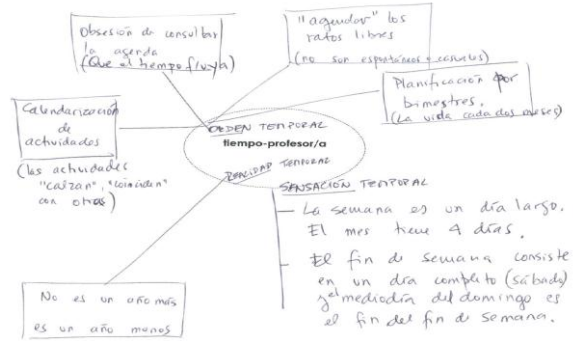 Obsesión de consultar
la agenda
(Que el tiempo fluya)
"agendar" los
ratos libres
(no son espontáneos o casuales)
Planificación por
bimestres.
(La vida cada dos meses)
Calendarización
de
actividades
(las actividades
"calzan", "coinciden"
con otras)
ORDEN TEMPORAL
tiempo-profesor/a
TEMPORAL
SENSACIÓN TEMPORAL
- La semana es un día largo.
El mes tiene 4 días.
- El fin de semana consiste
en un día completo (sábado)
y el mediodía del domingo es
el fin del fin de semana.
No es un año más
es un año menos